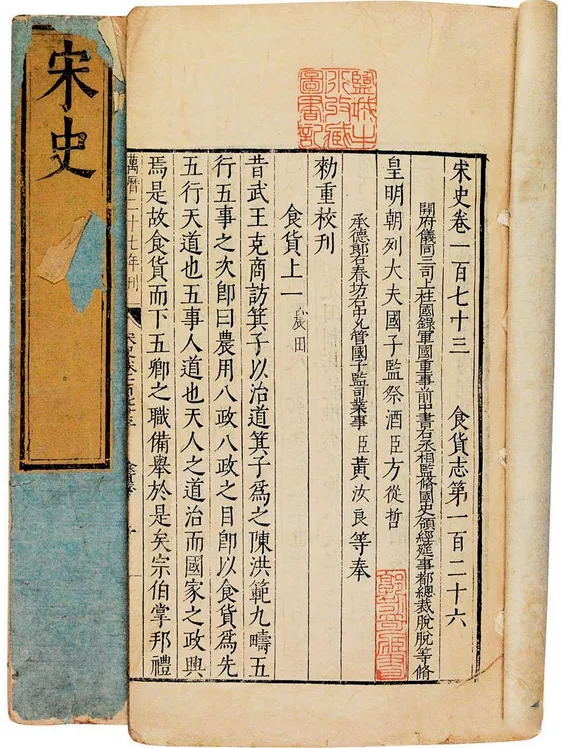 宋史
鹽城
圖書記
宋史卷一百七十三 食貨志第一百二十六
開府儀同三司上柱國錄軍國重事前中書右丞相監修國史領經筵事都總裁脫脫等修
皇明朝列大夫國子監祭酒臣方從哲
承德郎右春坊右中允管國子監司業事臣黃汝良等奉
勑重校刊
食貨上一 農田
昔武王克商訪箕子以治道箕子爲之陳洪範九疇五
行五事之次卽曰農用八政八政之目卽以食貨爲先
五行天道也五事人道也天人之道治而國家之政興
焉是故食貨而下五卿之職備舉於是矣宗伯掌邦禮
萬曆二十七年刊